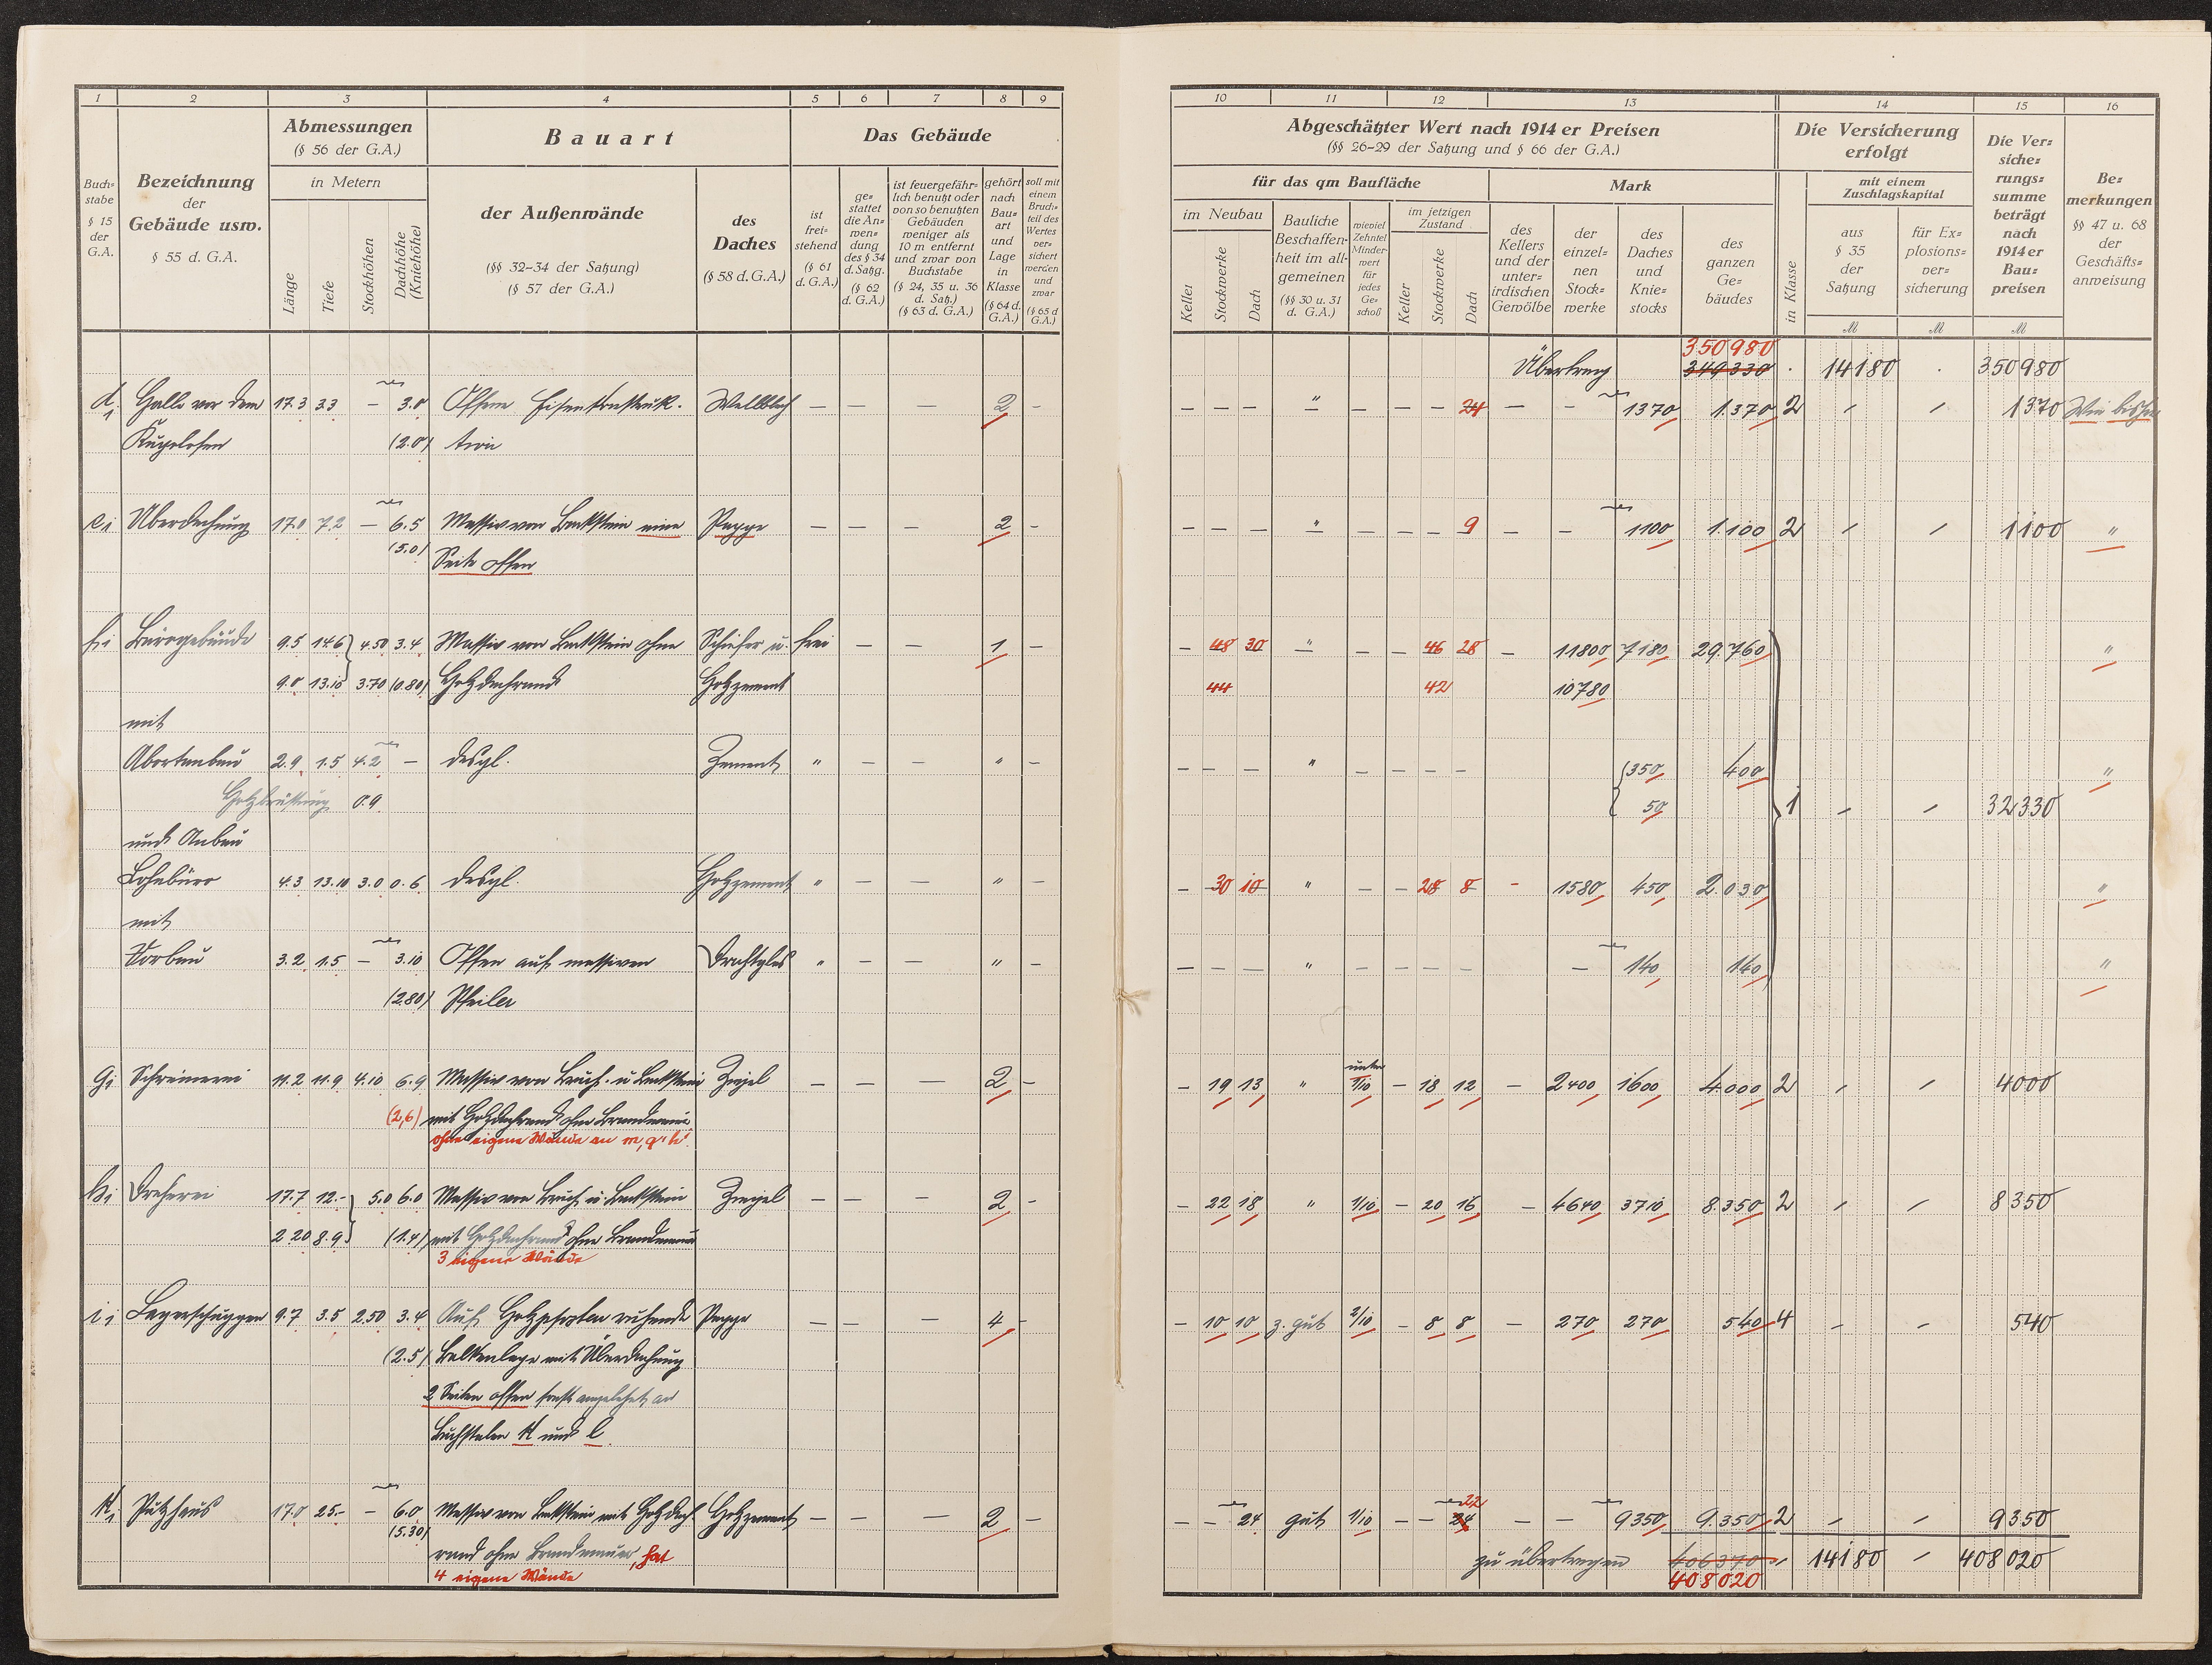 1 2 3 4 5 6 7 8 9
Abmessungen
(§ 56 der G.A.)
Bauart
Das Gebäude
Buch=
stabe
§ 15
der
G.A.
Bezeichnung
der
Gebäude usw.
§ 55 d. G.A.
in Metern
Länge
Tiefe
Stockhöhen
Dachhöhe
(Kniehöhe)
der Außenwände
(§§ 32–34 der Satzung)
(§ 57 der G.A.)
des
Daches
(§ 58 d. G.A.)
ist
frei=
stehend
(§ 61
d. G.A.)
ge=
stattet
die An=
wen=
dung
des § 34
d. Satzg.
(§ 62
d. G.A.)
ist feuergefähr=
lich benutzt oder
von so benutzten
Gebäuden
weniger als
10 m entfernt
und zwar von
Buchstabe
(§ 24, 35 u. 36
d. Satz.)
(§ 63 d. G.A.)
gehört
nach
Bau=
art
und
Lage
in
Klasse
(§ 64 d.
G.A.)
soll mit
einem
Bruch=
teil des
Wertes
ver=
sichert
werden
und
zwar
(§ 65 d
G.A.)
d1 Halle vor dem 17.3 3.3 – 3.0 Offene Eisenkonstruk- Wellblech – – – 2 –
Kugelofen (2.0) tion
e1 Überdachung 17.0 7.2 – 6.5 Massiv von Backstein eine Pappe – – – 2 –
(5.0) Seite offen
f1 Bürogebäude 9.5 14.6 4.50 3.4 Massiv von Backstein ohne Schiefer u. frei – – 1 –
9.0 13.10 3.70 (0.80) Holzdachrand Holzzement
mit
Abortanbau 2.9 1.5 4.2 – desgl. Zement " – – " –
Holzbrüstung 0.9
und Anbau
Lohnbüro 4.3 13.10 3.0 0.6 desgl. Holzzement " – – " –
mit
Vorbau 3.2 1.5 – 3.10 Offen auf massiven Drahtglas " – – " –
(2.80) Pfeiler
g1 Schreinerei 11.2 11.9 4.10 6.9 Massiv von Bruch- u Backstein Ziegel – – – 2 –
(2,6) mit Holzdachrand ohne Brandmauer
ohne eigene Wände an m, g' h'
h1 Dreherei 17.7 12.- 5.0 6.0 Massiv von Bruch u Backstein Ziegel – – – 2 –
2.20 8.9 (1.4) mit Holzdachrand ohne Brandmauer
3 eigene Wände
i1 Lagerschuppen 9.7 3.5 2.50 3.4 Auf Holzpfosten ruhende Pappe – – – 4 –
(2.5) Balkenlage mit Überdachung
2 Seiten offen sonst angelehnt an
Buchstaben k und l
k1 Putzhaus 17.0 25.- – 6.0 Massiv von Backstein mit Holzdach- Holzzement – – – 2 –
(5.30) rand ohne Brandmauer, hat
4 eigene Wände
10 11 12 13 14 15 16
Abgeschätzter Wert nach 1914 er Preisen
(§§ 26–29 der Satzung und § 66 der G.A.)
Die Versicherung
erfolgt
Die Ver=
siche=
rungs=
summe
beträgt
nach
1914 er
Bau=
preisen
Be=
merkungen
§§ 47 u. 68
der
Geschäfts=
anweisung
für das qm Baufläche
Mark
in Klasse
mit einem
Zuschlagskapital
im Neubau
Keller
Stockwerke
Dach
Bauliche
Beschaffen=
heit im all=
gemeinen
(§§ 30 u. 31
d. G.A.)
wieviel
Zehntel
Minder=
wert
für
jedes
Ge=
schoß
im jetzigen
Zustand
Keller
Stockwerke
Dach
des
Kellers
und der
unter=
irdischen
Gewölbe
der
einzel=
nen
Stock=
werke
des
Daches
und
Knie=
stocks
des
ganzen
Ge=
bäudes
aus
§ 35
der
Satzung
für Ex=
plosions=
ver=
sicherung
M M M
350980
Übertrag 349330 . 14180 . 350980
– – – " – – – 24 – – 1370 1.370 2 – – 1370 Wie bisher
– – – " – – – 9 – – 1100 1.100 2 – – 1100 "
– 48 30 " – – 46 28 – 11800 7180 29.760 "
44 42 10780
– – – " – – – – 350 400 "
50 1 – – 32330
– 30 10 " – – 28 8 – 1580 450 2.030 "
– – – " – – – – – 140 140 "
unter
– 19 13 " 1/10 – 18 12 – 2400 1600 4.000 2 – – 4000
– 22 18 " 1/10 – 20 16 – 4640 3710 8.350 2 – – 8350
– 10 10 z. gut 2/10 – 8 8 – 270 270 540 4 – – 540
22
– – 24 gut 1/10 – – 24 – – 9350 9.350 2 – – 9350
zu übertragen 406370 – 14180 – 408020
408020